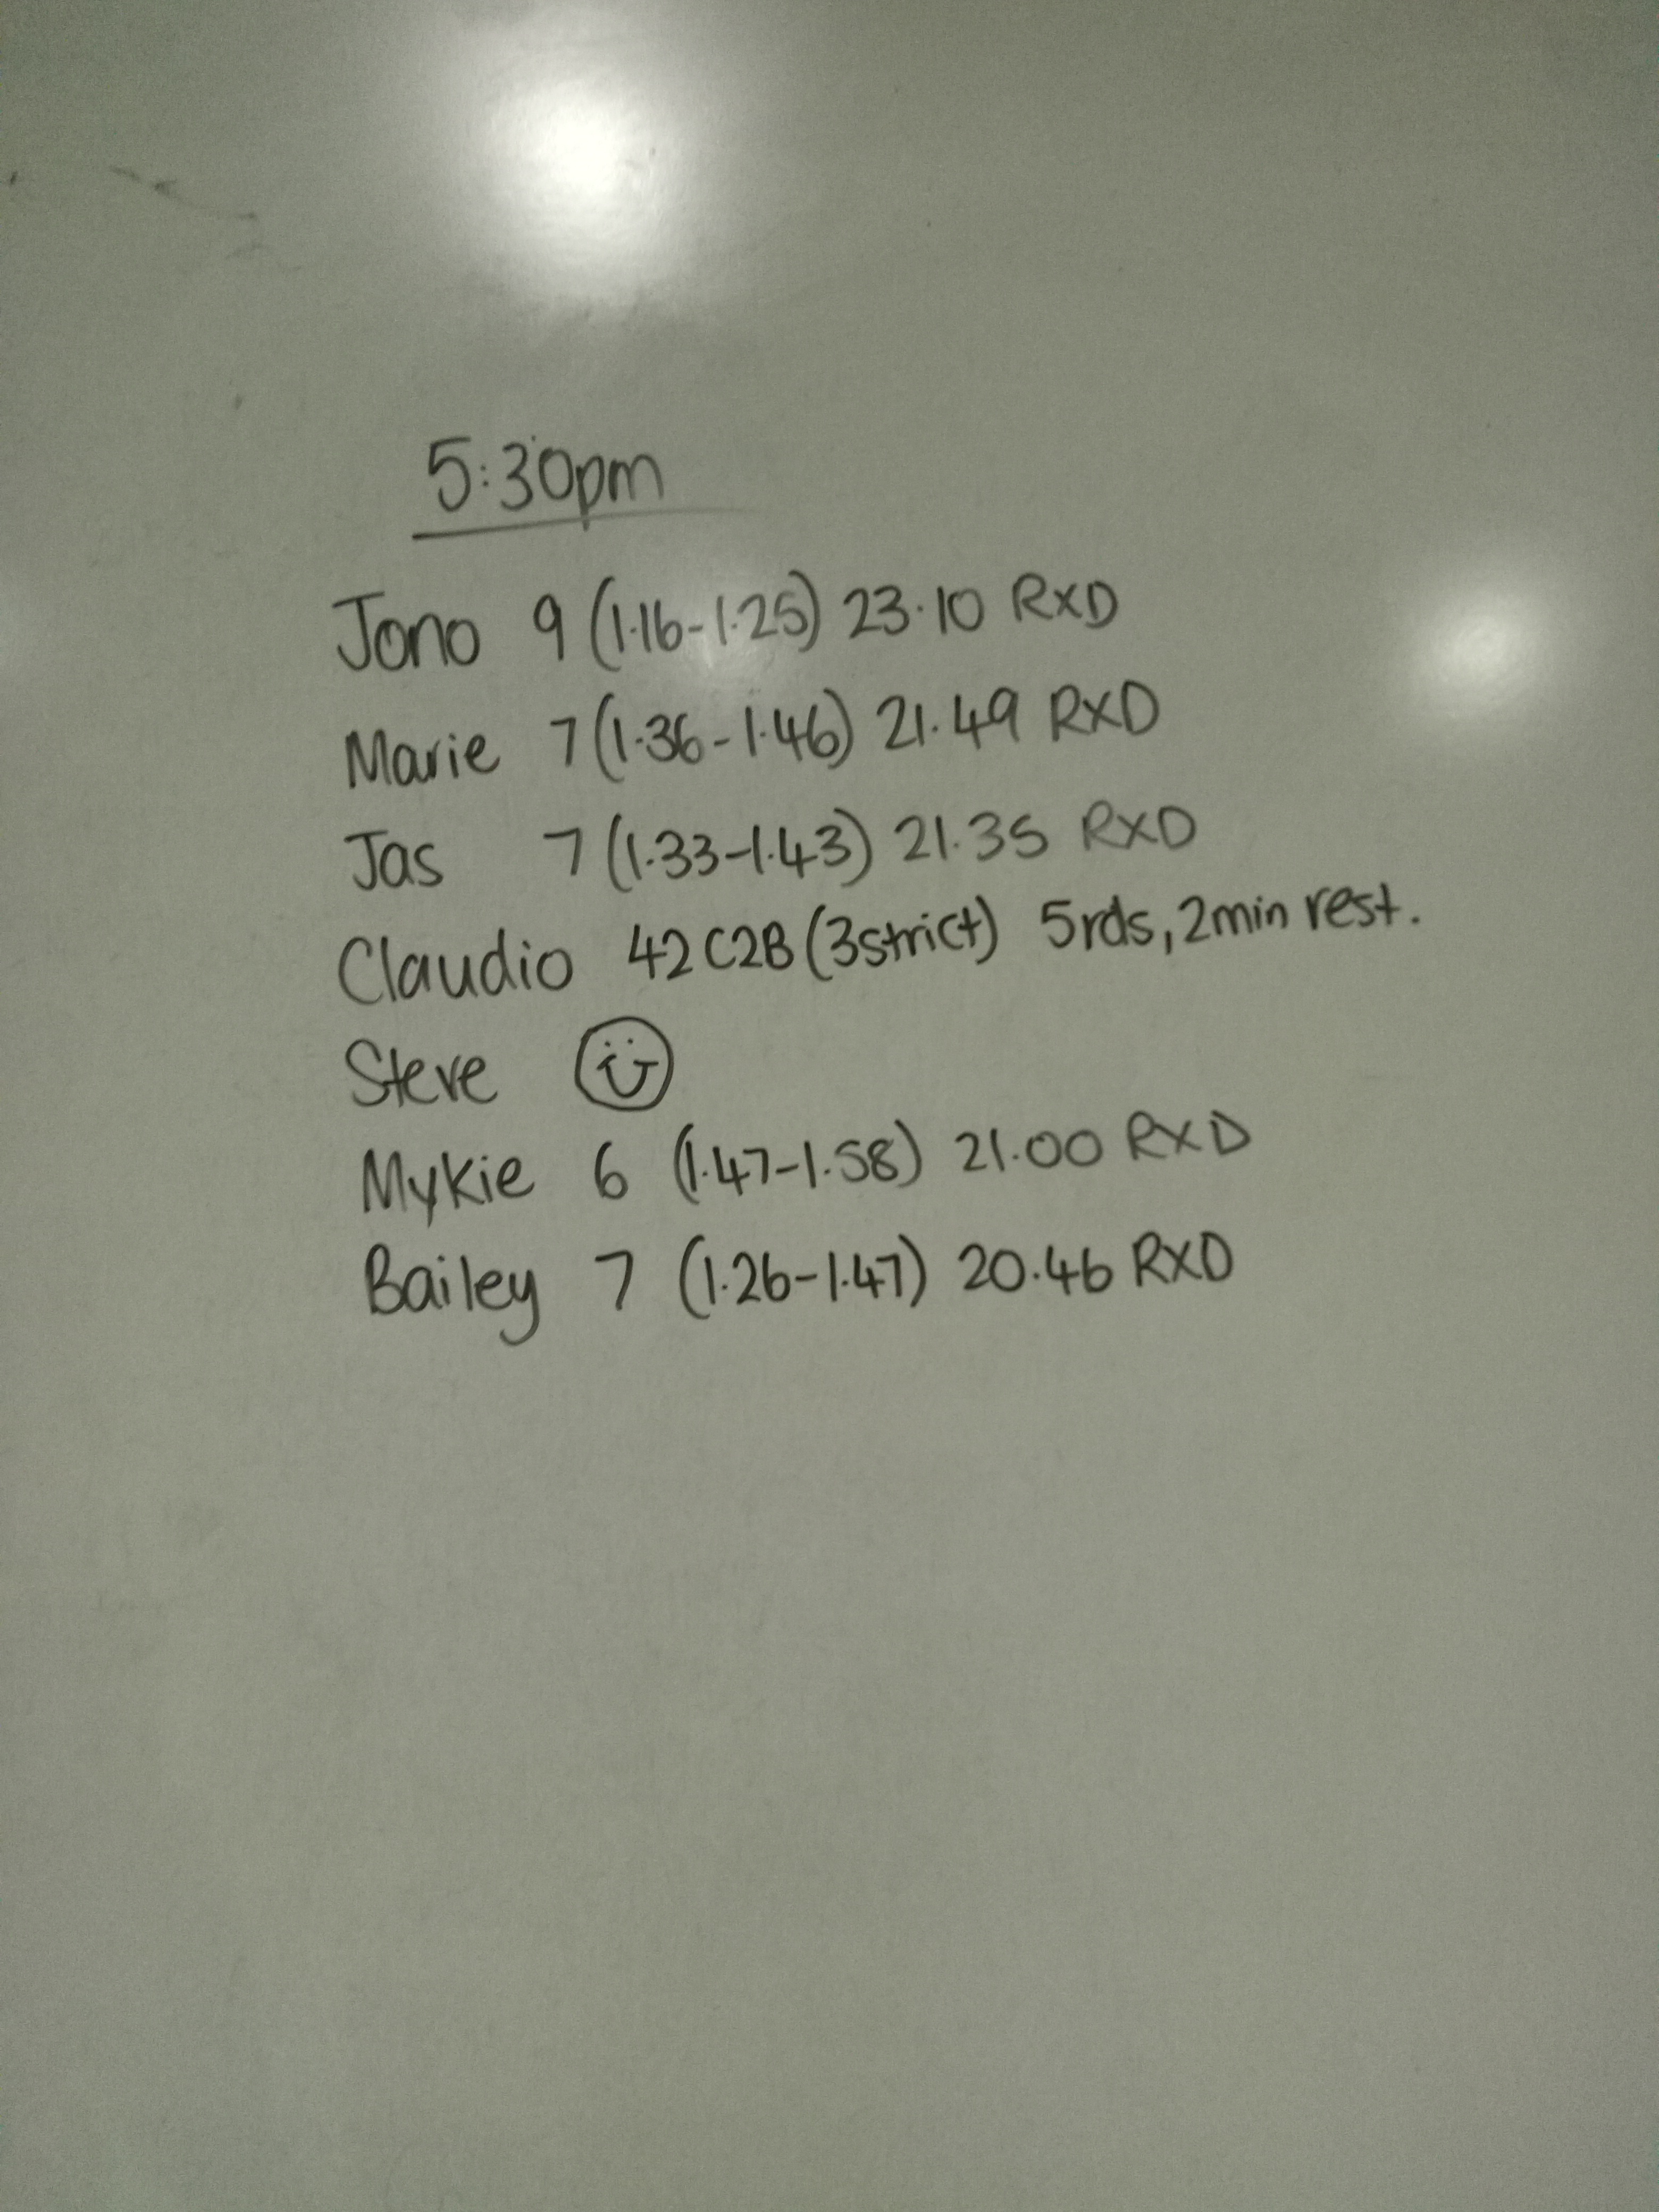 5:30pm
Jono 9 (1.16-1.25) 23.10 RXD
Marie 7 (1.36-1.46) 21.49 RXD
Jas 7 (1.33-1.43) 21.35 RXD
Claudio 42 C2B (3strict) 5rds, 2min rest.
Steve
Mykie 6 (1.47-1.58) 21.00 RXD
Bailey 7 (1.26-1.47) 20.46 RXD